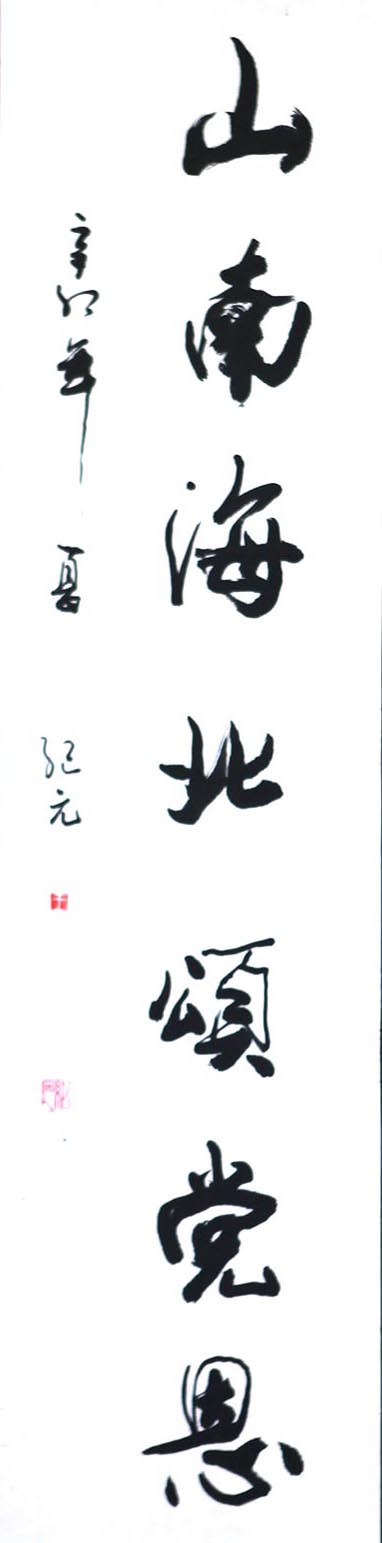 山南海北頌党恩
辛卯年 夏 纪元